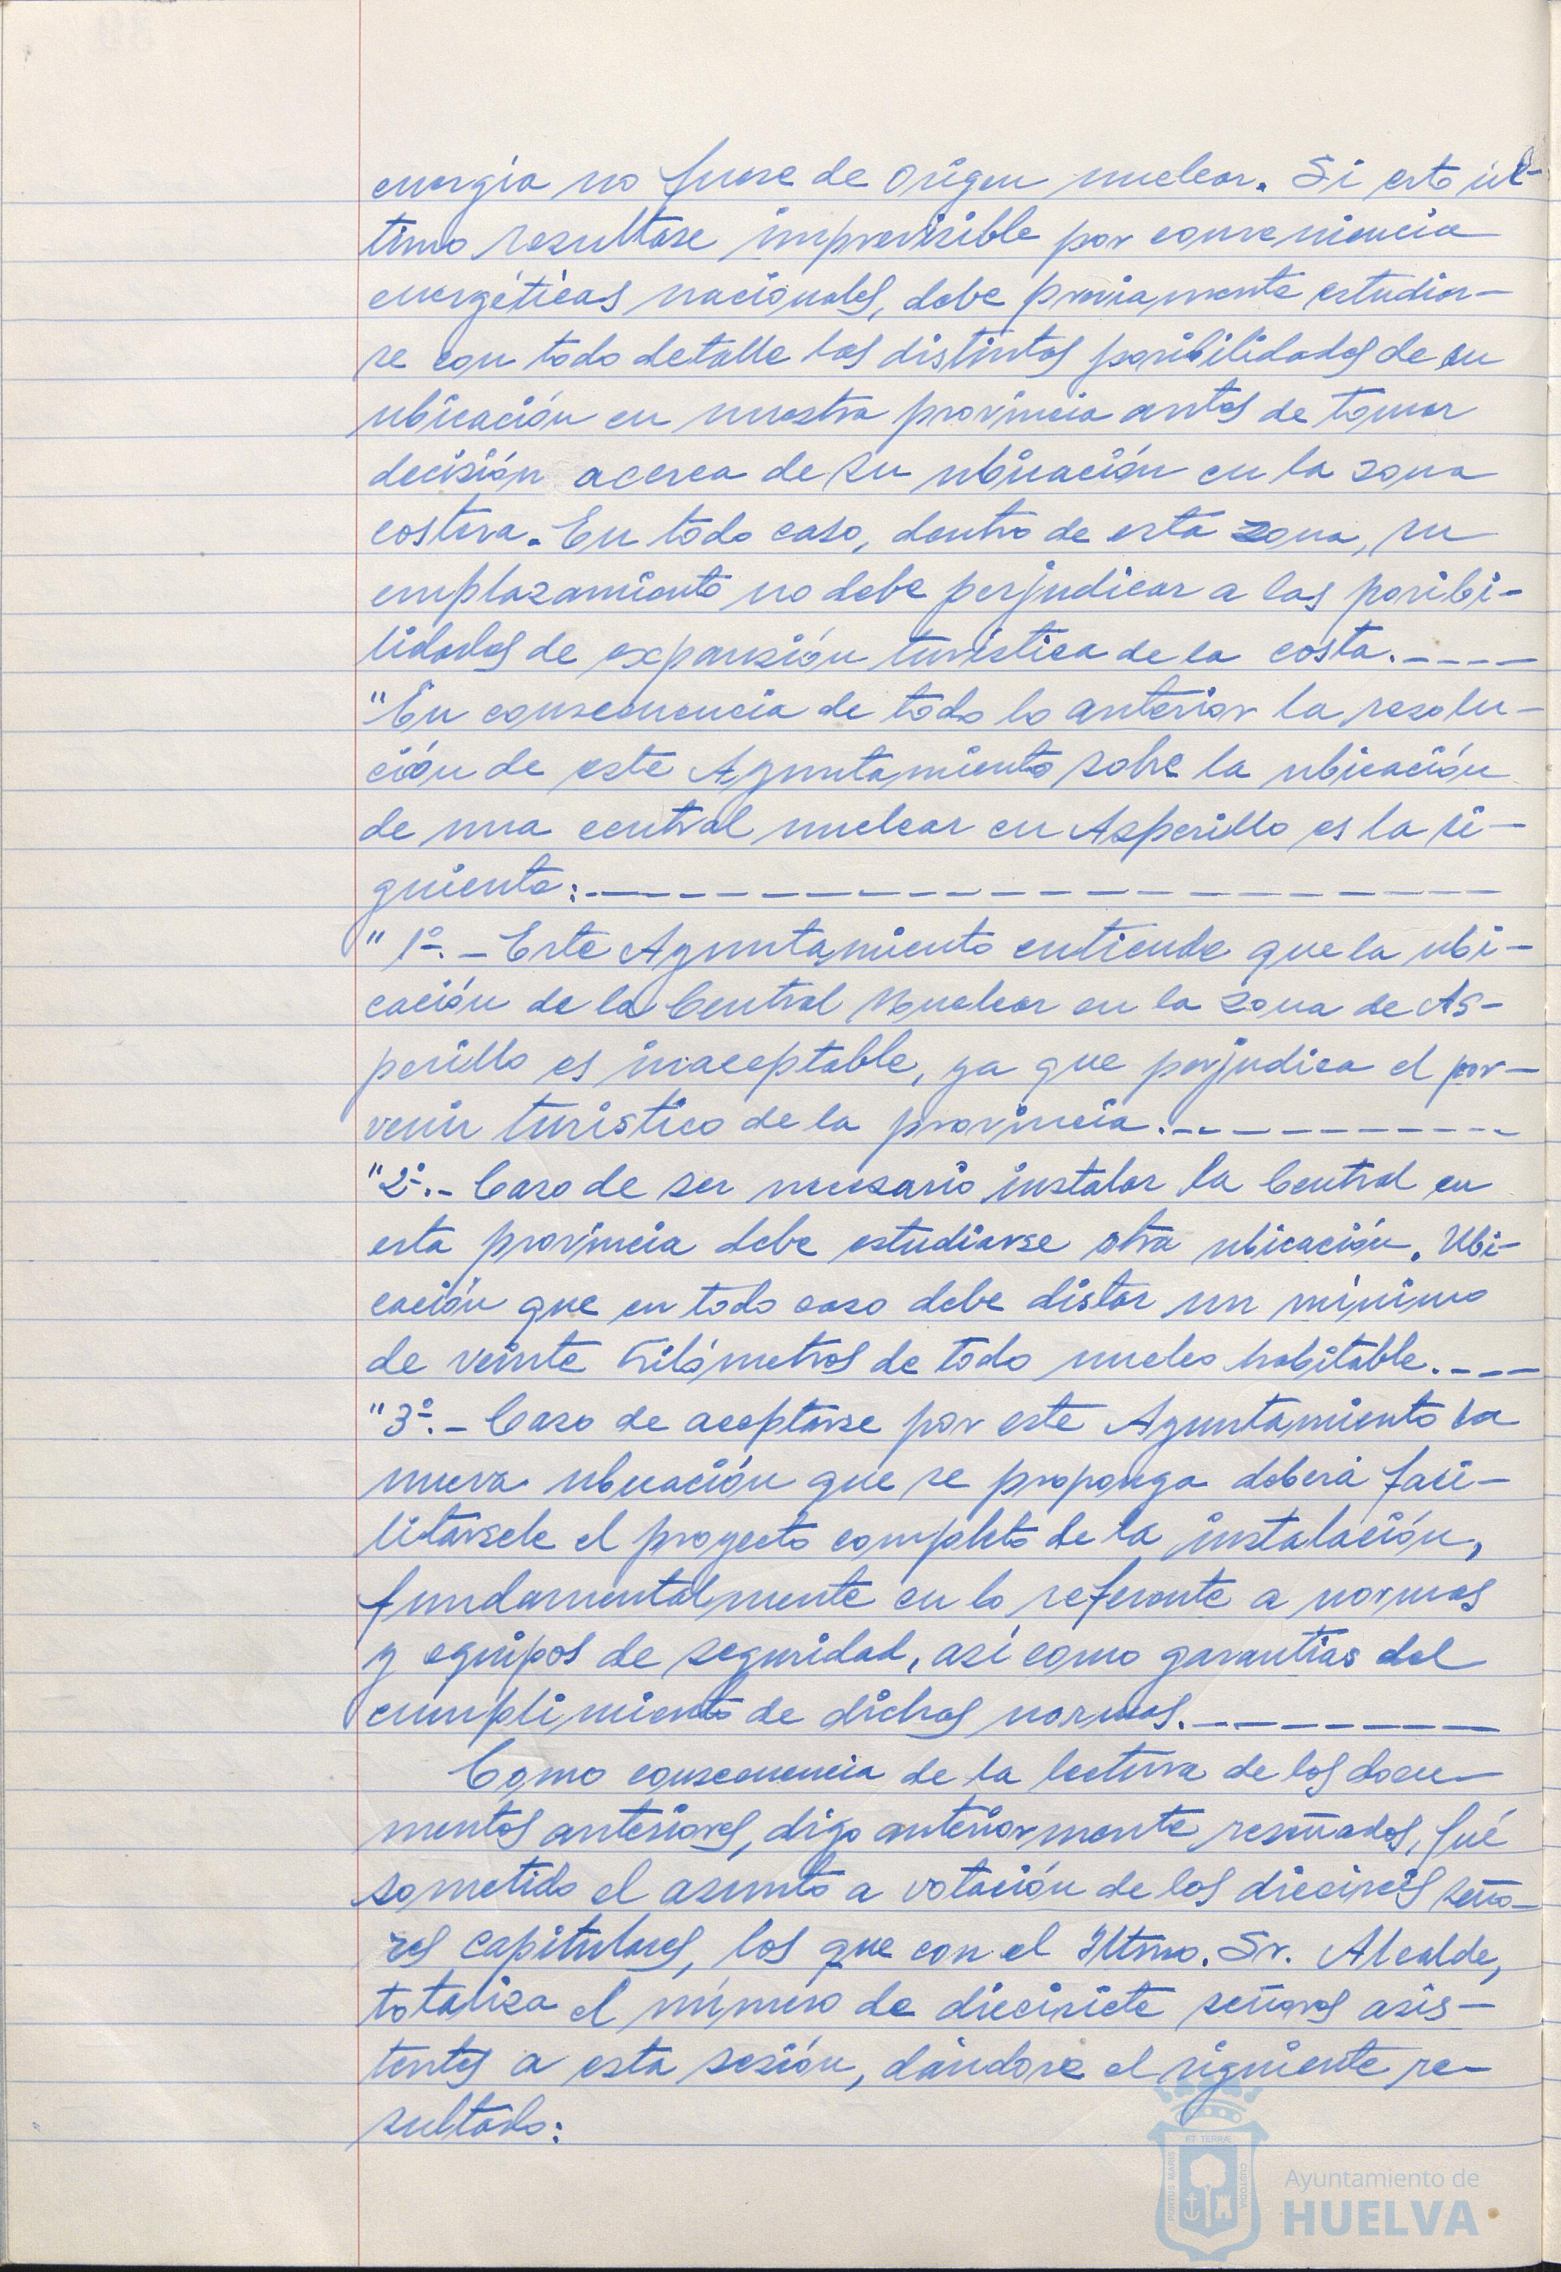 energía no fuese de origen nuclear. Si esto úl-
timo resultase imprevisible por conveniencia
energéticas nacionales, debe previamente estudiar-
se con todo detalle las distintas posibilidades de su
ubicación en nuestra provincia antes de tomar
decisión acerca de su ubicación en la zona
costera. En todo caso, dentro de esta zona, su
emplazamiento no debe perjudicar a las posibi-
lidades de expansión turística de la costa.----
"En consecuencia de todo lo anterior la resolu-
ción de este Ayuntamiento sobre la ubicación
de una central nuclear en Asperillo es la si-
guiente:--------------
"1º.- Este Ayuntamiento entiende que la ubi-
cación de la Central Nuclear en la zona de As-
perillo es inaceptable, ya que perjudica el por-
venir turístico de la provincia.----------
"2º.- Caso de ser necesario instalar la Central en
esta provincia debe estudiarse otra ubicación. Ubi-
cación que en todo caso debe distar un mínimo
de veinte kilómetros de todo nucleo habitable.----
"3º.- Caso de aceptarse por este Ayuntamiento la
nueva ubicación que se proponga deberá faci-
litársele el proyecto completo de la instalación,
fundamentalmente en lo referente a normas
y equipos de seguridad, así como garantías del
cumplimiento de dichas normas.--------
Como consecuencia de la lectura de los docu-
mentos anteriores, digo anteriormente reseñados, fué
sometido el asunto a votación de los dieciseis seño-
res capitulares, los que con el Iltmo. Sr. Alcalde,
totaliza el número de diecisiete señores asis-
tentes a esta sesión, dándose el siguiente re-
sultado:
PORTUS MARIS
ET TERRÆ
CUSTODIA
Ayuntamiento de
HUELVA